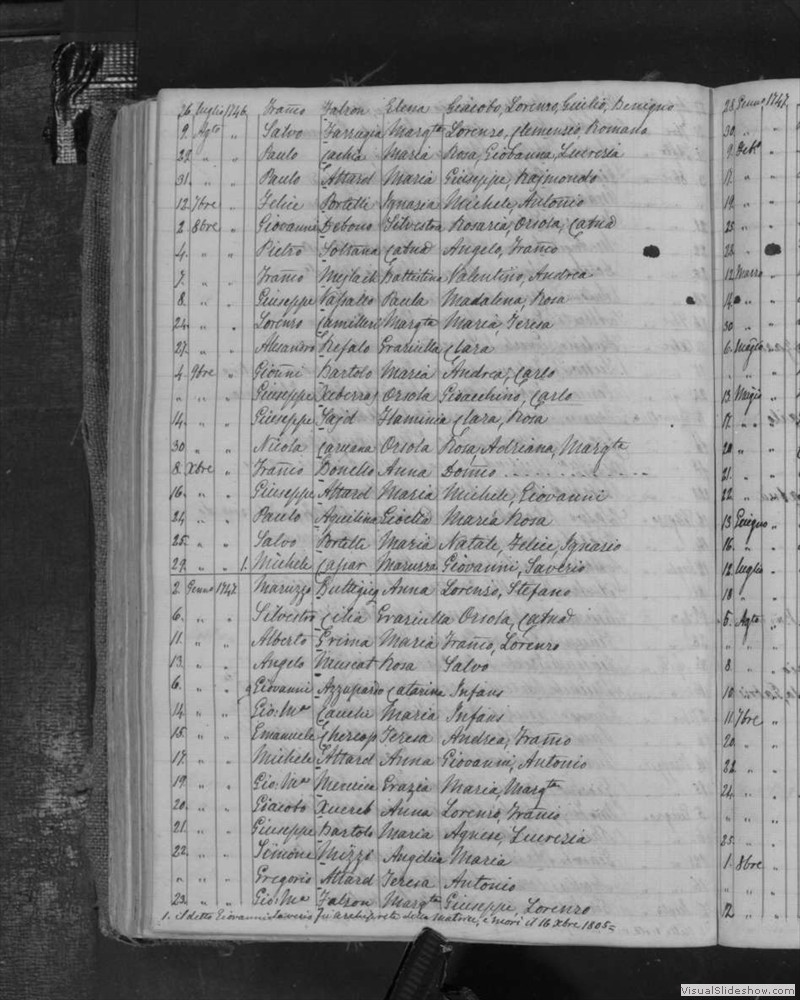 26. luglio 1746. Franco Falzon Elena Giacobo, Lorenzo, Giulio, Benigno
9. Agto „ Salvo Farrugia Margta Lorenzo, Clemenseo Romano
22. „ „ Paulo Cachia Maria Rosa, Giobanna, Lucrezia
31. „ „ Paulo Attard Maria Giuseppe, Rajmondo
12. 7bre „ Felice Portelli Ignazia Michele, Antonio
2. 8bre „ Giovanni Debono Silvestra Rosaria, Orsola, Catnā
4. „ „ Pietro Soltana Catnā Angelo, Franco
7. „ „ Franco Mejlach Battistina Valentino, Andrea
8. „ „ Giuseppe Paula Madalena, Rosa
24. „ „ Lorenzo Camilleri Margta Maria, Teresa
27. „ „ Alesandro Refalo Graziulla Clara
4. 9bre „ Gionni Bartolo Maria Andrea, Carlo
„ „ „ Giuseppe Xeberras Orsola Gioacchino, Carlo
14. „ „ Giuseppe Sajd Flaminia Clara, Rosa
30 „ „ Nicola Caruana Orsola Rosa, Adriana, Margta
8. Xbre „ Franco Bonello Anna Domco
16. „ „ Giuseppe Attard Maria Michele, Giovanni
24 „ „ Paulo Aquilina Gioella Maria Rosa
25. „ „ Salvo Portelli Maria Natale, Felice, Ignazio
29. „ „ 1. Michele Capar Maruzza Giovanni, Saverio
2. Genno 1747. Maruzzo Buttigieg Anna Lorenzo, Stefano
6. „ „ Silvestro Cilia Graziulla Orsola, Catnā
11. „ „ Alberto Grima Maria Franco, Lorenzo
13. „ „ Angelo Muscat Rosa Salvo
6. „ „ Giovanni Azzupardo Catarina Infans
14. „ „ Gio: Ma Cauchi Maria Infans
15. „ „ Emanuele Chercop Teresa Andrea, Franco
17. „ „ Michele Attard Anna Giovanni, Antonio
19. „ „ Gio: Ma Mercieca Grazia Maria, Margta
20. „ „ Giacobo Xuereb Anna Lorenzo, Franco
21. „ „ Giuseppe Bartolo Maria Agnese, Lucrezia
22. „ „ Simone Mizzi Angelica Maria
„ „ „ Gregorio Attard Teresa Antonio
23. „ „ Gio: Ma Falzon Margta Giuseppe, Lorenzo
1. il detto Giovanni Saverio fu archiprete della Matrice, e morì il 16 Xbre 1805=
28. Genno 1747.
30. „ „
9. Febo „
17. „ „
19. „ „
25. „ „
28. „ „
12 Marzo „
„ „
30 „ „
6. „
13. „
17. „ „
20. „ „
21. „ „
22. „ „
13 Giugno „
16. „ „
12 luglio „
18 „ „
5. Agto „
„ „ „
8 „ „
10. „ „
11. 7bre „
20. „ „
22. „ „
24. „ „
„ „ „
25. „ „
1. 8bre „
„ „ „
12 „ „
VisualSlideshow.com